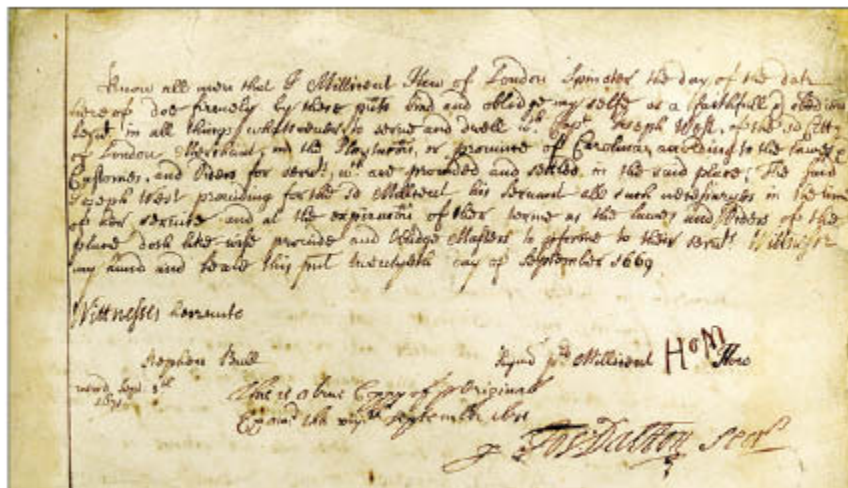 Know all men that I Millicent How of London Spinster the day of the date
hereof doe firmely by these pnts bind and oblidge my selfe as a faithfull & obedient
Servt in all things whatsoever, to serve and dwell wth Capt. Joseph West, of the sd Citty
of London Merchant, in the Plantation, or province of Carolina, according to the lawes
Customes, and Orders for servts, wch are provided and setled, in the said place; The said
Joseph West providing for the sd Millicent his servant all such necessaryes in the time
of her service and at the expiration of her terme as the lawes and Orders of the
place doth like wise provide and Oblidge Masters to pforme to their servts. Wittness
my hand and seale this pnt twentyeth day of September 1669
Wittnesses hereunto
Stephen Bull
Signd Millicent HoM How
record Sept. 8th
1671
This is a true Coppy of ye Originall
Examd the September 1671
p Jos Dalton Secry